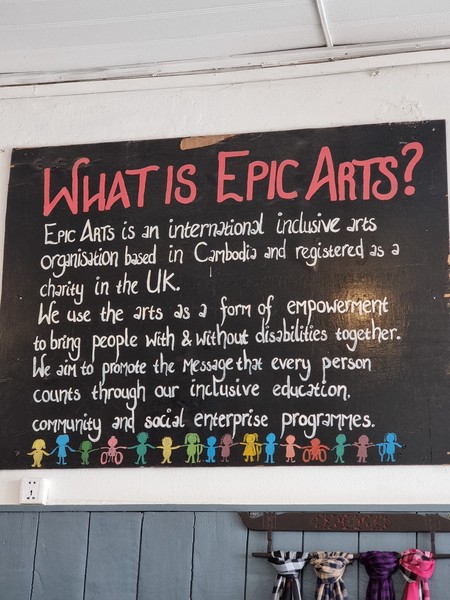 WHAT IS EPIC ARTS?
EPIC ARTS is an international inclusive arts
organisation based in Cambodia and registered as a
charity in the UK.
We use the arts as a form of empowerment
to bring people with & without disabilities together.
We aim to promote the message that every person
counts through our inclusive education,
community and social enterprise programmes.